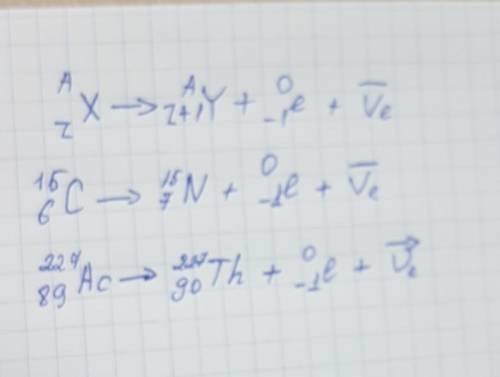 ᴬ_Z X → ᴬ_Z+1 Y + ⁰_-1 e + ν̅_e
¹⁵_6 C → ¹⁵_7 N + ⁰_-1 e + ν̅_e
²²⁷_89 Ac → ²²⁷_90 Th + ⁰_-1 e + ν⃗_e